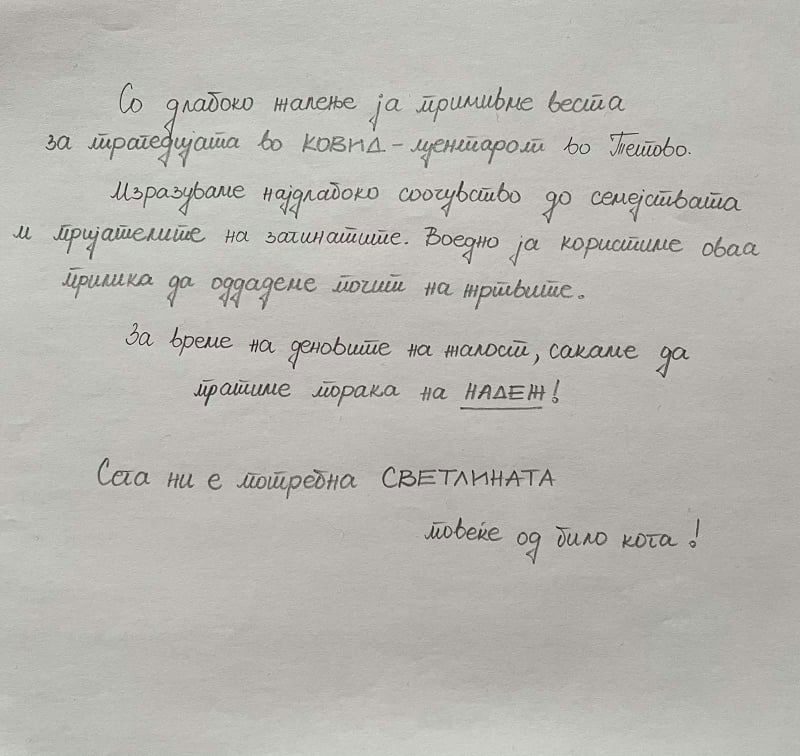 Со длабоко жалење ја примивме веста
за трагедијата во КОВИД-центарот во Тетово.
Изразуваме најдлабоко сочувство до семејствата
и пријателите на загинатите. Воедно ја користиме оваа
прилика да оддадеме почит на жртвите.
За време на деновите на жалост, сакаме да
пратиме порака на НАДЕЖ!
Сега ни е потребна СВЕТЛИНАТА
повеќе од било кога!